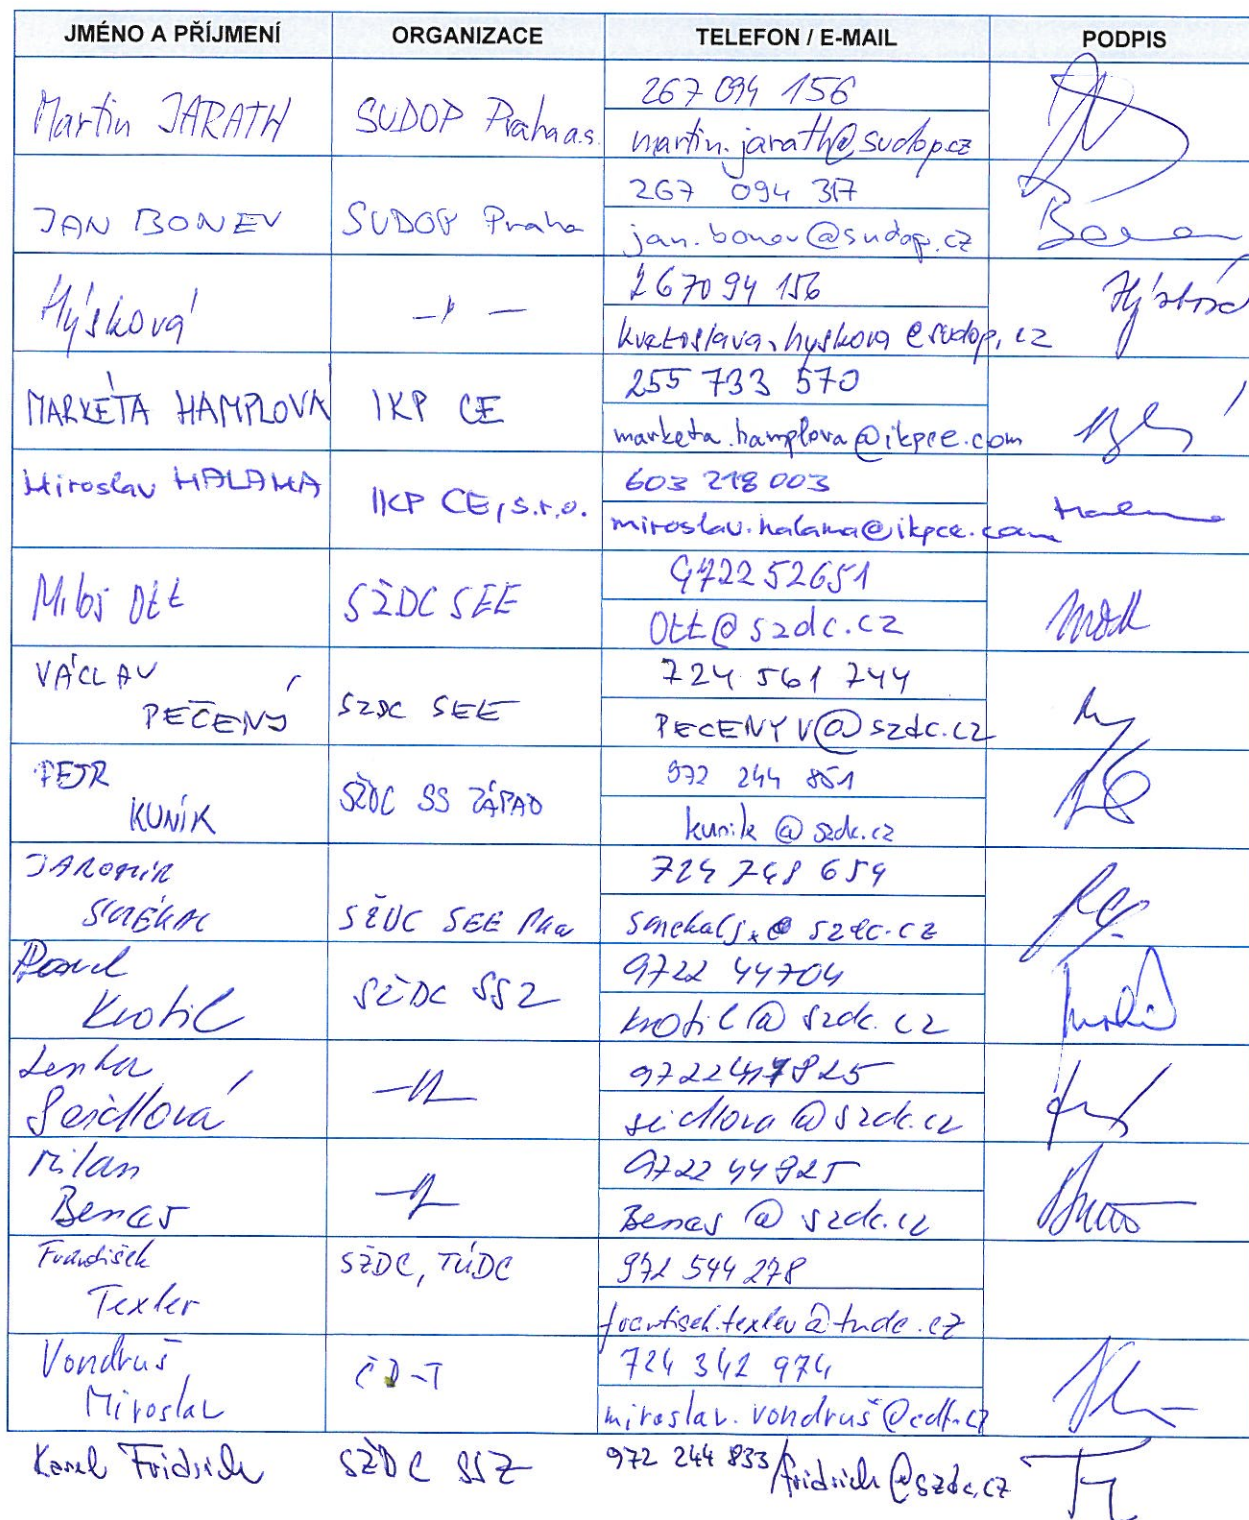 JMÉNO A PŘÍJMENÍ ORGANIZACE TELEFON / E-MAIL PODPIS
Martin JARATH SUDOP Praha a.s. 267 094 156
martin.jarath@sudop.cz
JAN BONEV SUDOP Praha 267 094 317
jan.bonev@sudop.cz
Hýsková 267094 156
kvetoslava.hyskova@sudop.cz
MARKÉTA HAMPLOVÁ IKP CE 255 733 570
marketa.hamplova@ikpce.com
Miroslav HALAMA IKP CE, s.r.o. 603 218 003
miroslav.halama@ikpce.com
Miloš Ott SŽDC SEE 972252651
Ott@szdc.cz
VÁCLAV
PEČENÝ SZDC SEE 724 561 744
PECENYV@szdc.cz
PETR
KUNÍK SŽDC SS ZÁPAD 972 244 851
kunik@szdc.cz
JAROMÍR
SMÉKAL SŽDC SEE Pha
Pavel
Krotil SŽDC SSZ 9722 44704
krotil@szdc.cz
Lenka
Seidlová
seidlova@szdc.cz
Milan
Beneš 9722 44825
Benes@szdc.cz
František
Texler SŽDC, TÚDC 972 544 278
frantisek.texler@tudc.cz
Vondruš
Miroslav ČD-T 724 342 974
miroslav.vondruš@cdt.cz
Karel Fridrich SŽDC SSZ 972 244 833/fridrich@szdc.cz